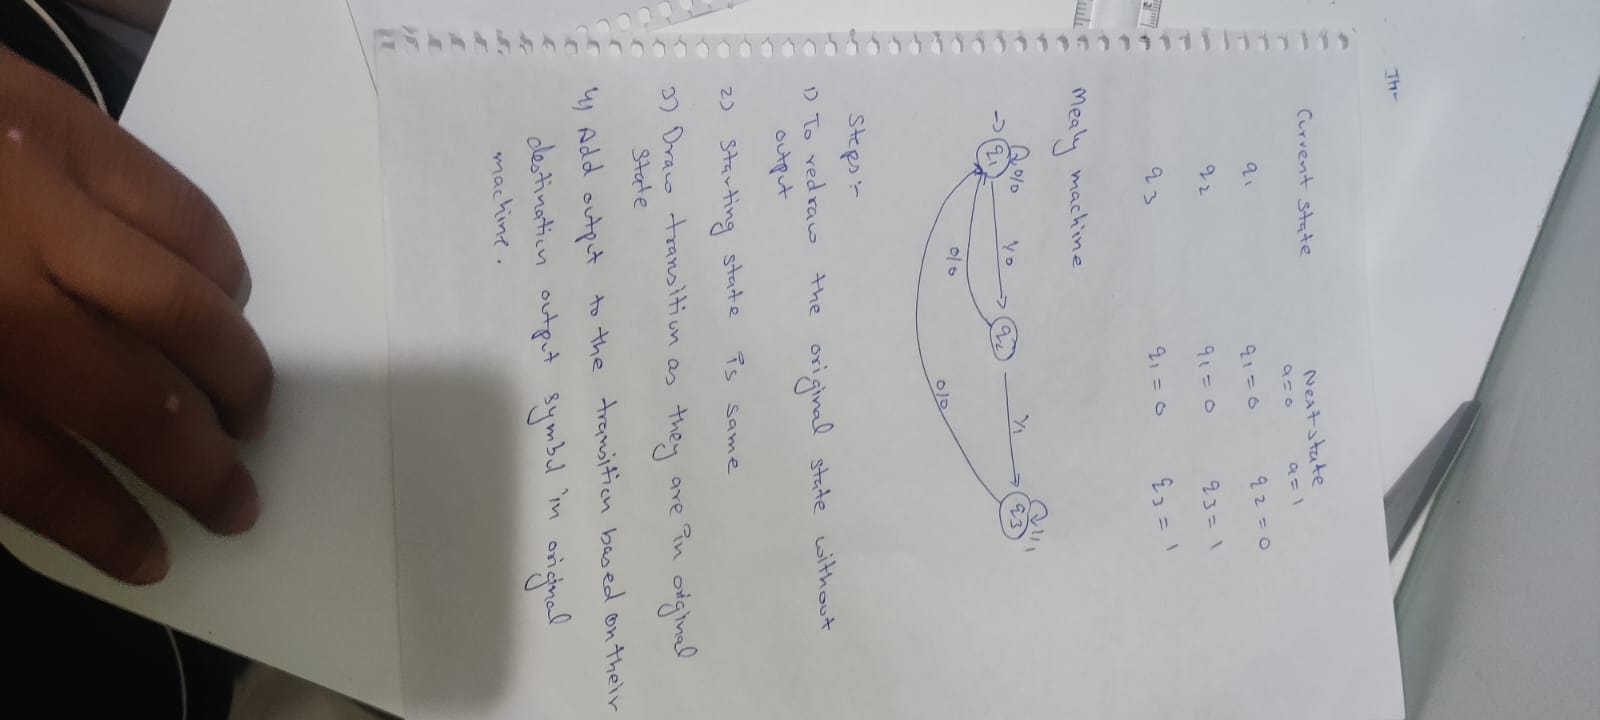 Current state Next state
a=0 a=1
q1 q1=0 q2=0
q2 q1=0 q3=1
q3 q1=0 q3=1
Mealy machine
0/0 1/0 1/1 1/1
→ q1 q2 q3
0/0
0/0
Steps:-
1) To redraw the original state without
output
2) Starting state is same
3) Draw transition as they are in original
State
4) Add output to the transition based on their
destination output symbol in original
machine.